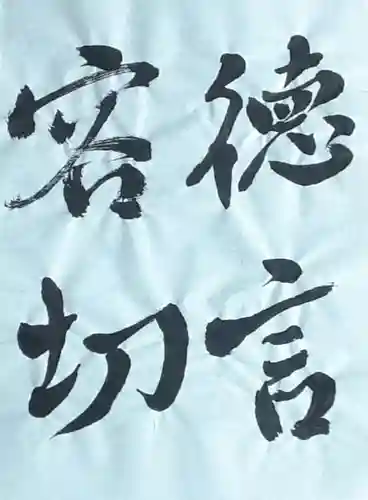 德言
容切